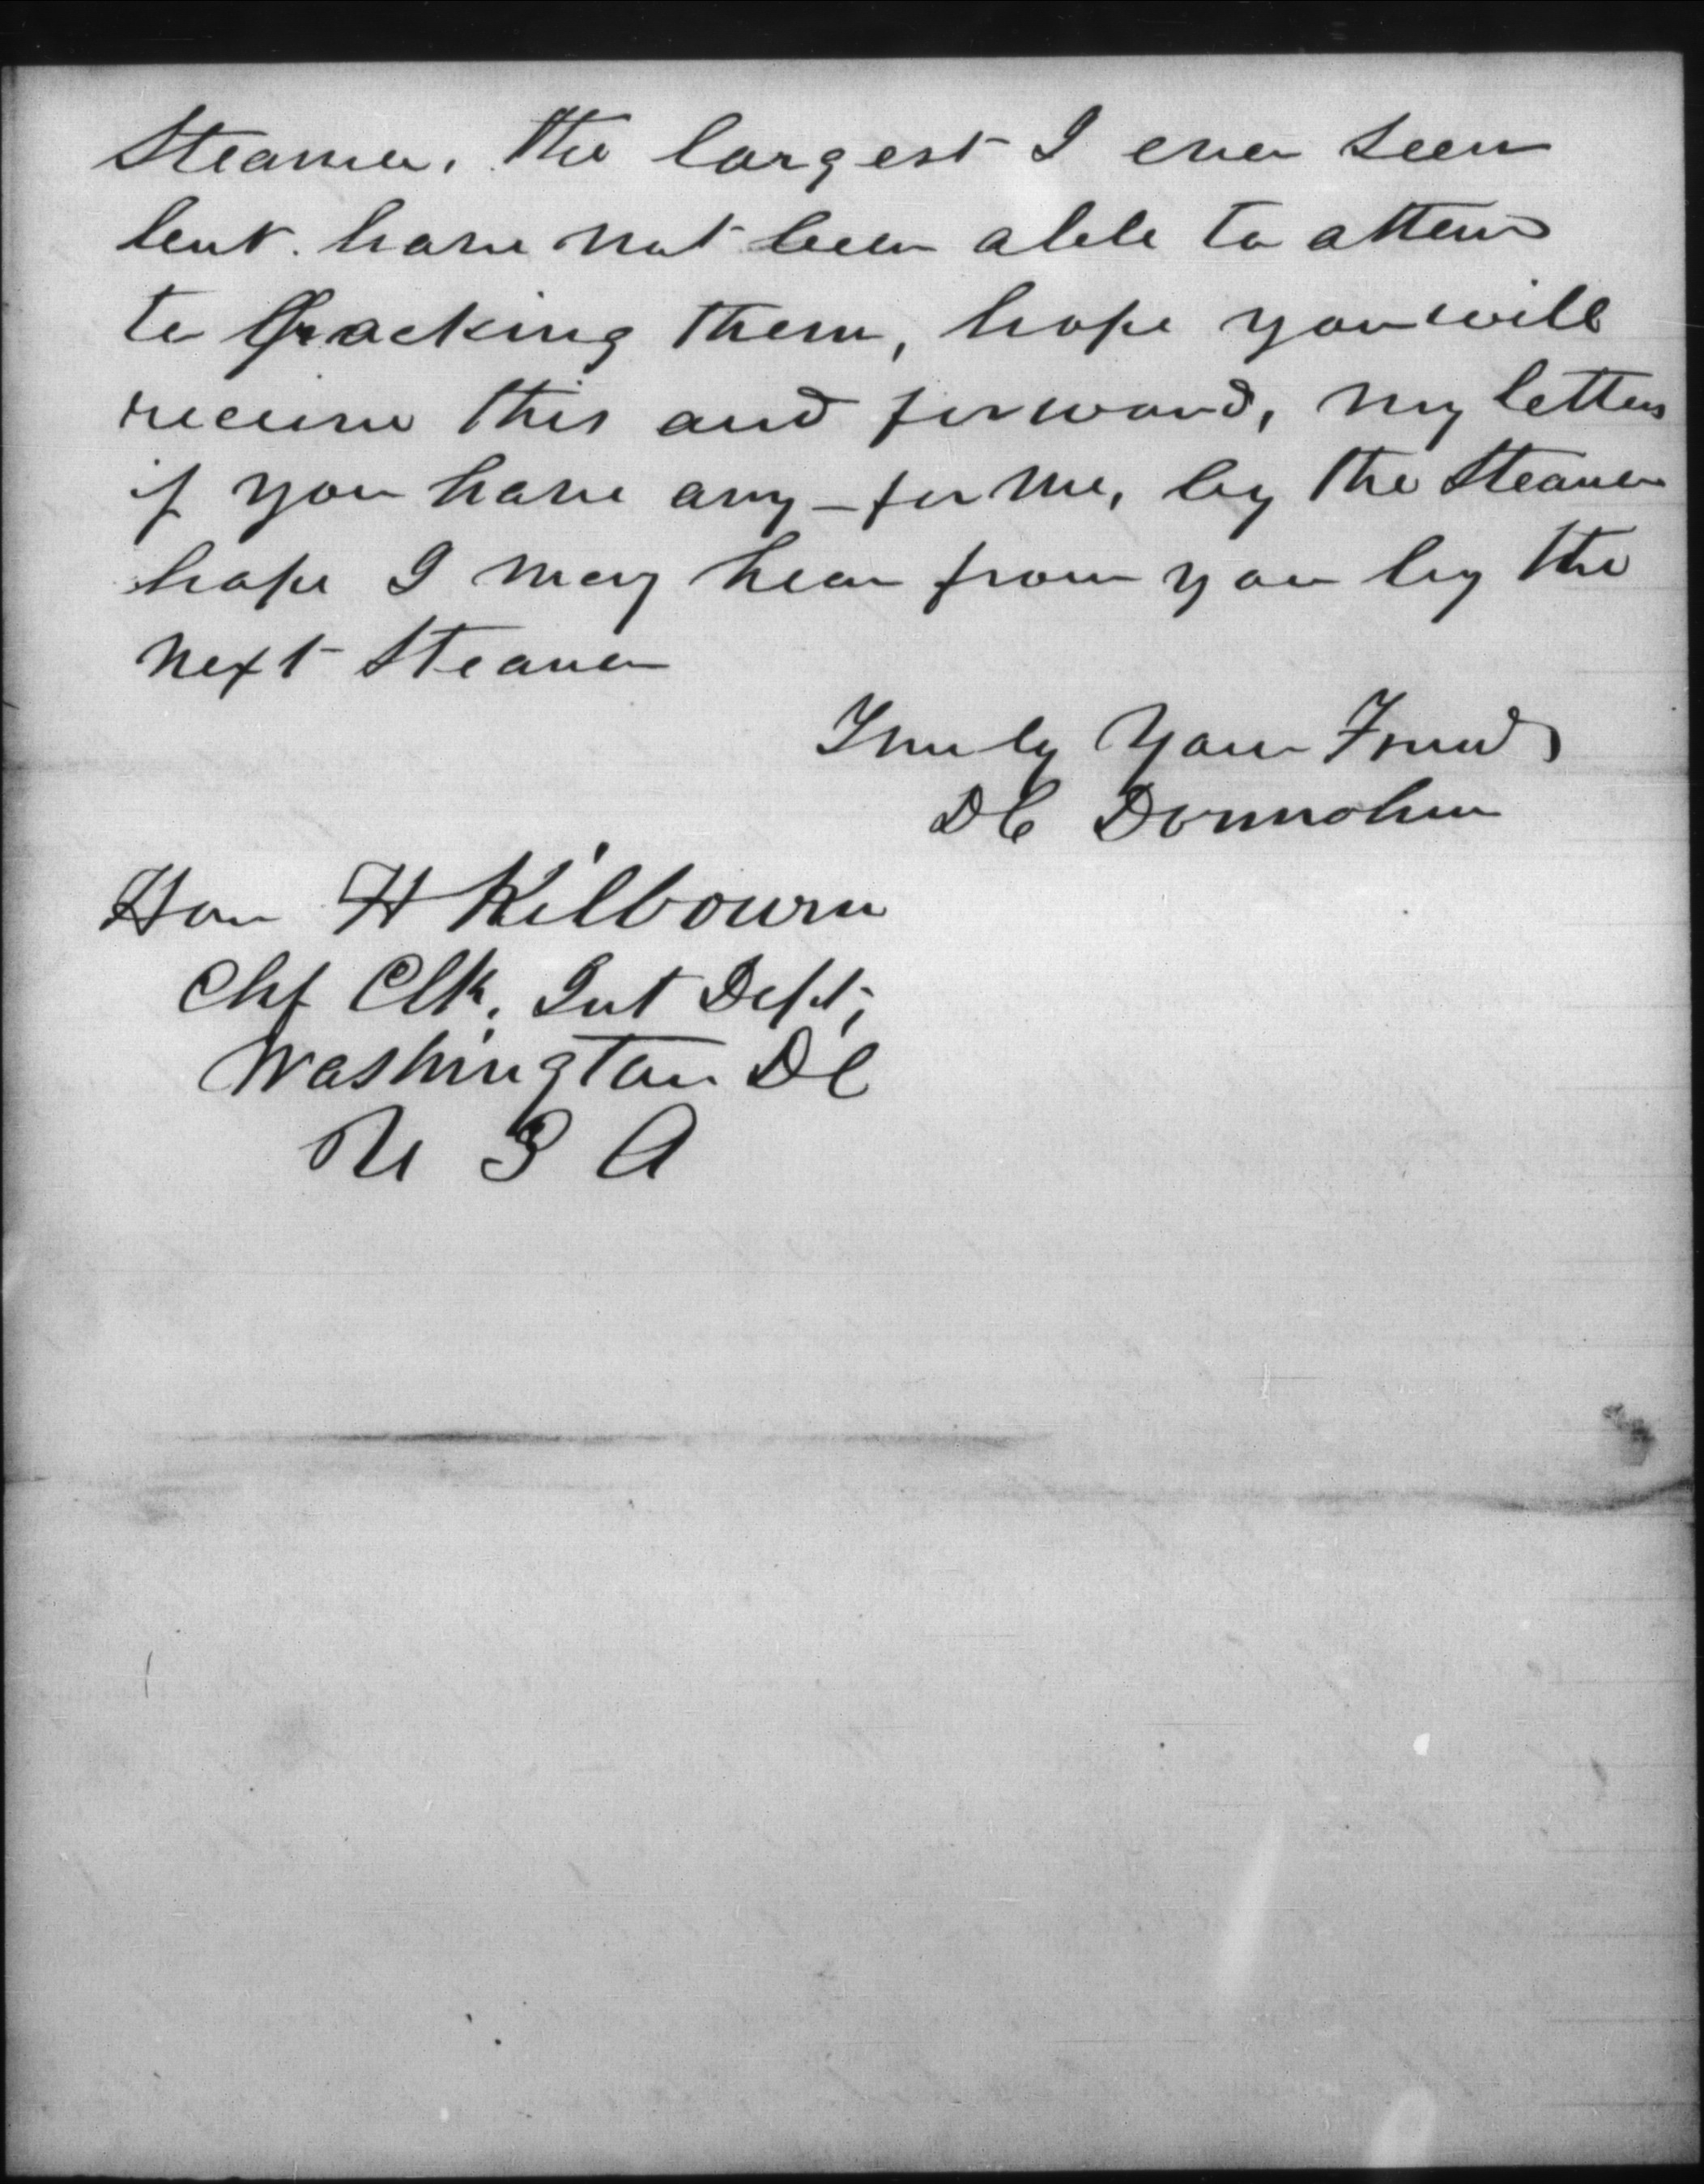 Steamer. The largest I ever seen
but. have not been able to attend
to packing them, hope you will
receive this and forward, my letters
if you have any - for me, by the Steamer
hope I may hear from you by the
next Steamer
Truly Your Friend
D C Donnohue
Hon H Kilbourn
Chf Clk. Int Dept,
Washington D C
U S A